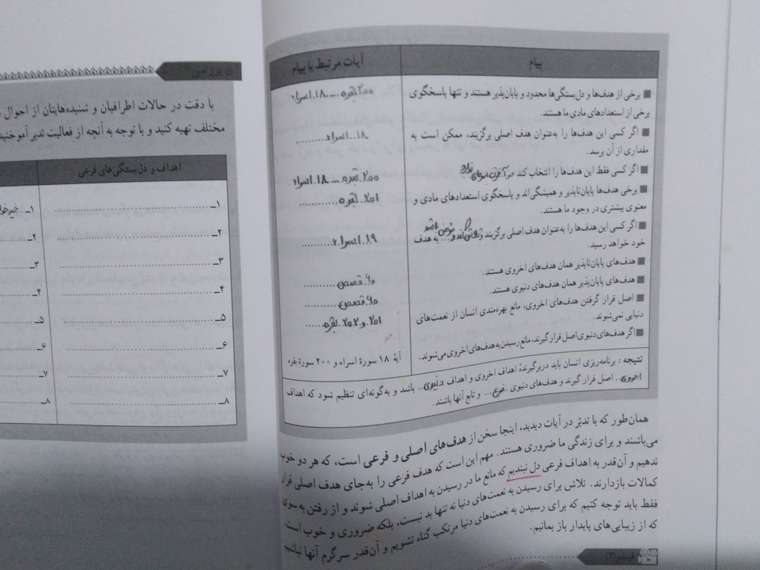 پیام
آیات مرتبط با پیام
■ برخی از هدف‌ها و دل‌بستگی‌ها محدود و پایان‌پذیر هستند و تنها پاسخگوی
برخی از استعدادهای مادی ما هستند.
۲۰۰ بقره ... ۱۸. اسراء
■ اگر کسی این هدف‌ها را به‌عنوان هدف اصلی برگزیند، ممکن است به
مقداری از آن برسد.
۱۸.. اسراء
■ اگر کسی فقط این هدف‌ها را انتخاب کند در آخرت
۲۰۰. بقره ... ۱۸. اسراء
■ برخی هدف‌ها پایان‌ناپذیر و همیشگی‌اند و پاسخگوی استعدادهای مادی و
معنوی بیشتری در وجود ما هستند.
۲۰۱. بقره
■ اگر کسی این هدف‌ها را به‌عنوان هدف اصلی برگزیند و ... به هدف
خود خواهد رسید.
۱۹. اسراء
■ هدف‌های پایان‌ناپذیر همان هدف‌های اخروی هستند.
۶۰. قصص
■ هدف‌های پایان‌پذیر همان هدف‌های دنیوی هستند.
۶۰. قصص
■ اصل قرار گرفتن هدف‌های اخروی، مانع بهره‌مندی انسان از نعمت‌های
دنیایی نمی‌شوند.
۲۰۱ و ۲۰۲. بقره
■ اگر هدف‌های دنیوی اصل قرار گیرند، مانع رسیدن به هدف‌های اخروی می‌شوند.
آیهٔ ۱۸ سورهٔ اسراء و ۲۰۰ سورهٔ بقره
نتیجه : برنامه‌ریزی انسان باید دربرگیرندهٔ اهداف اخروی و اهداف دنیوی.. باشد و به‌گونه‌ای تنظیم شود که اهداف
اخروی... اصل قرار گیرند و هدف‌های دنیوی ..فرع... و تابع آنها باشند.
همان‌طور که با تدبّر در آیات دیدید، اینجا سخن از هدف‌های اصلی و فرعی است، که هر دو خوب
می‌باشند و برای زندگی ما ضروری هستند. مهم این است که هدف فرعی را به‌جای هدف اصلی قرار
ندهیم و آن‌قدر به اهداف فرعی دل نبندیم که مانع ما در رسیدن به اهداف اصلی شوند و از رفتن به سوی
کمالات بازدارند. تلاش برای رسیدن به نعمت‌های دنیا نه تنها بد نیست، بلکه ضروری و خوب است.
فقط باید توجه کنیم که برای رسیدن به نعمت‌های دنیا مرتکب گناه نشویم و آن‌قدر سرگرم آنها نباشیم
که از زیبایی‌های پایدار باز بمانیم.
با دقت در حالات اطرافیان و شنیده‌هایتان از احوال
مختلف تهیه کنید و با توجه به آنچه از فعالیت تدبر آموختید
اهداف و دل‌بستگی‌های فرعی
۱ـ
۲ـ
۳ـ
۴ـ
۵ـ
۶ـ
۷ـ
۸ـ
۱ـ
۲ـ
۳ـ
۴ـ
۵ـ
۶ـ
۷ـ
۸ـ